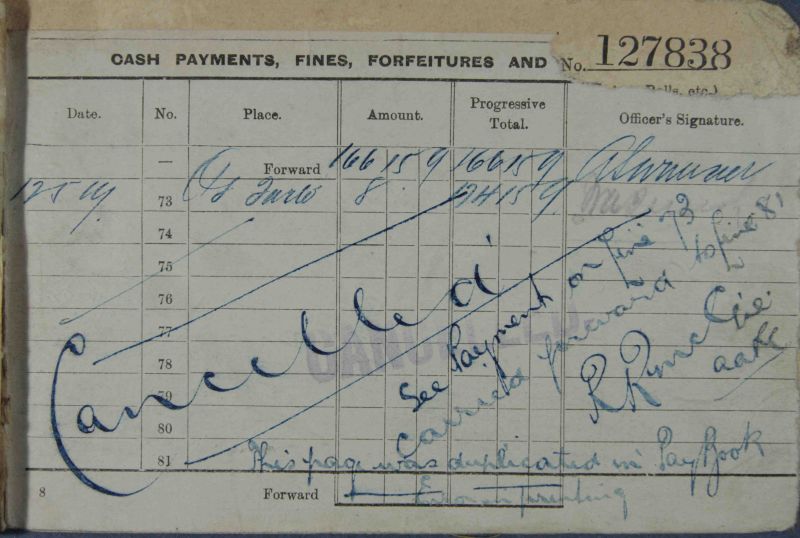 CASH PAYMENTS, FINES, FORFEITURES AND No. 127838
Rolls, etc.)
Date. No. Place. Amount. Progressive Total. Officer's Signature.
— Forward 166 15 9 166 15 9
12 5 19 73 8 174 15 9
74
75
76
77
78
79
80
81
Cancelled
CANCELLED
See Payment on line 73
carried forward to line 81
This page was duplicated in Pay Book
8 Forward
Error in printing